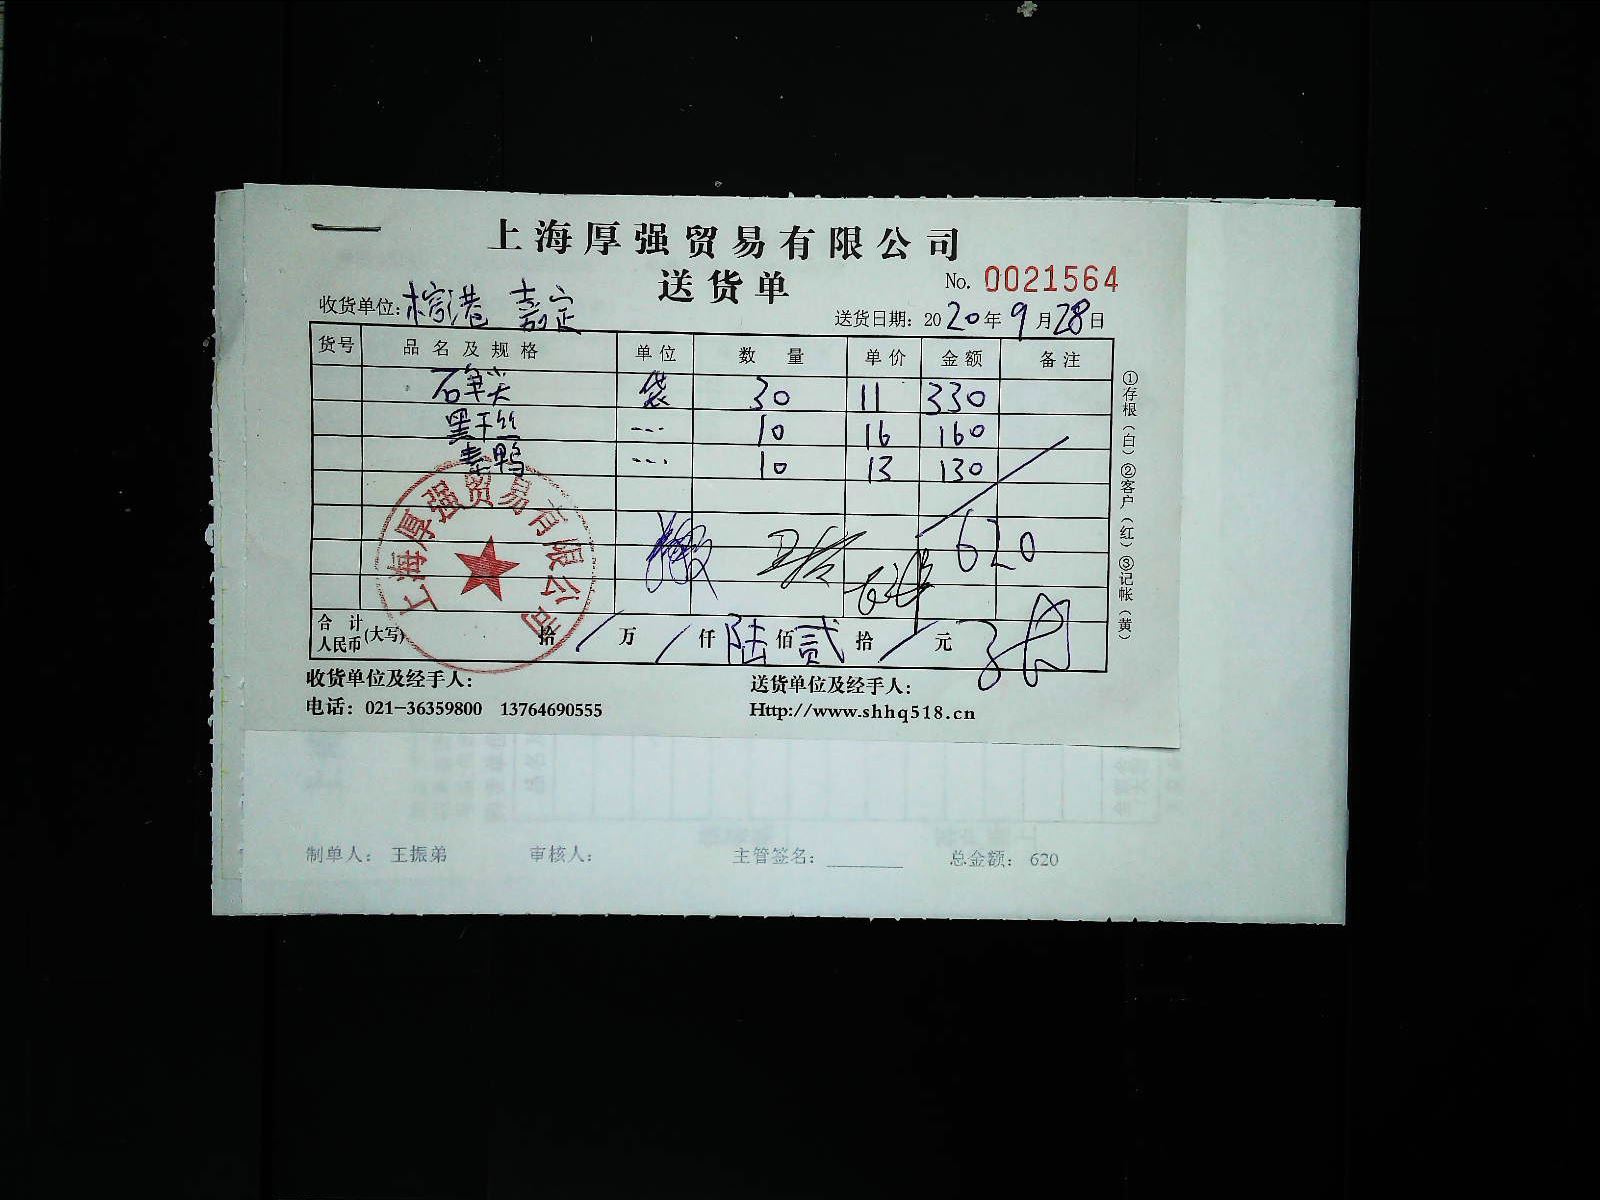 上海厚强贸易有限公司
送货单 No. 0021564
收货单位: 棕港 嘉定 送货日期: 2020年9月28日
货号 品名及规格 单位 数量 单价 金额 备注
袋 30 11 330
黑干丝 --- 10 16 160
素鸭 --- 10 13 130
620
合计人民币(大写) 拾 / 万 / 仟 陆 佰 贰 拾 / 元
收货单位及经手人: 送货单位及经手人:
电话: 021-36359800 13764690555 Http://www.shhq518.cn
①存根(白)②客户(红)③记帐(黄)
上海厚强贸易有限公司
制单人: 王振弟 审核人: 主管签名: 总金额: 620